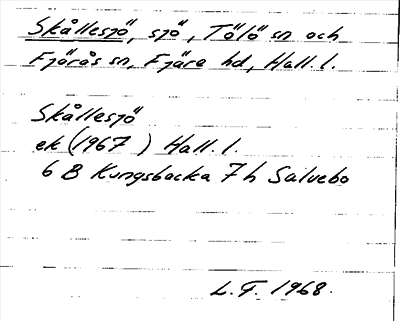 Skållesjö, sjö, Tölö sn och
Fjärås sn, Fjäre hd, Hall. l.
Skållesjö
ek (1967 ) Hall. l.
6 B Kungsbacka 7 h Salvebo
L.F. 1968.